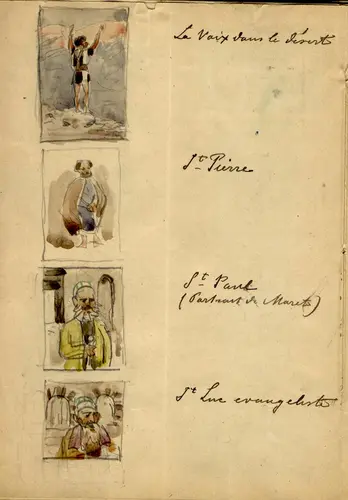 La Voix dans le désert
St. Pierre
St. Paul
(Portrait de Maret)
St. Luc evangeliste